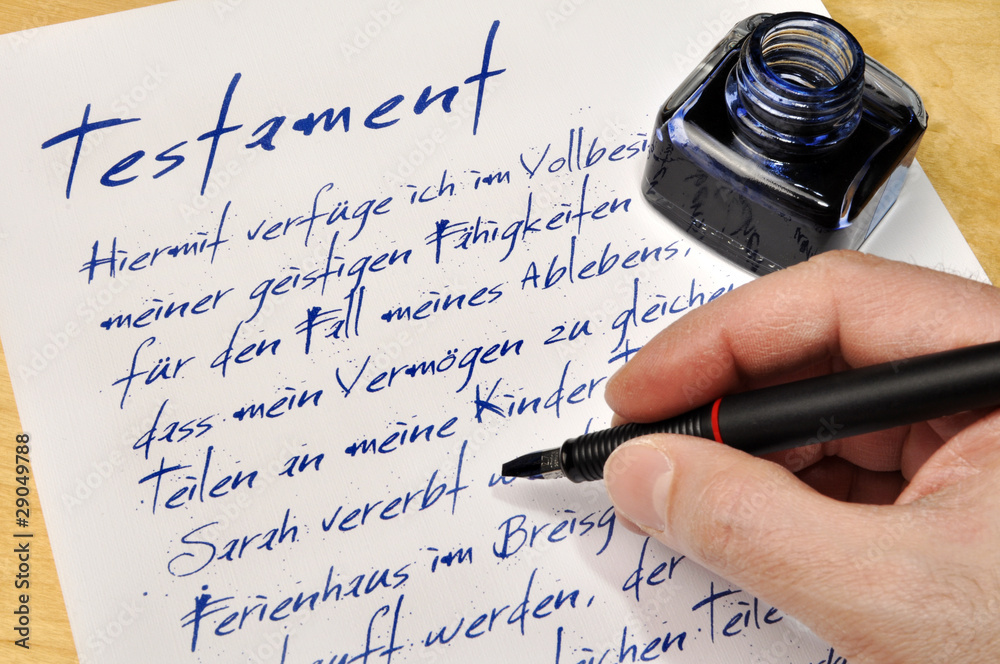 Testament
Hiermit verfüge ich im Vollbesi
meiner geistigen Fähigkeiten
für den Fall meines Ablebens,
dass mein Vermögen zu gleichen
Teilen an meine Kinder T
Sarah vererbt w
Ferienhaus im Breisg
auft werden, der
leichen Teile
Adobe Stock | #29049788